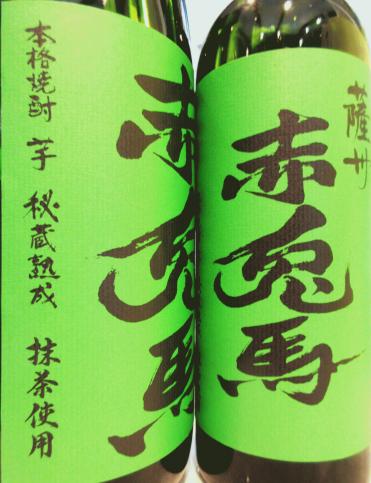 薩州
赤兎馬
赤兎馬
本格焼酎 芋 秘蔵熟成 抹茶使用